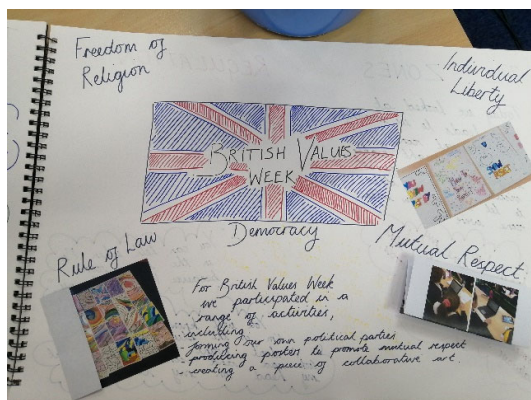 Freedom of
Religion
Individual
Liberty
BRITISH VALUES
WEEK
Democracy
Rule of Law
Mutual Respect
For British Values Week
we participated in a
range of activities,
including
forming our own political parties
producing posters to promote mutual respect
creating a piece of collaborative art.